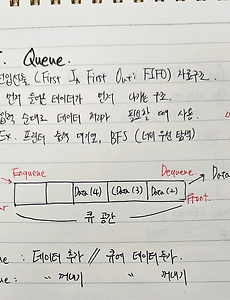 Queue.
선입선출 (First In First Out: FIFO) 자료구조.
먼저 들어온 데이터가 먼저 나가는 구조.
입력 순서대로 데이터 처리가 필요할 때 사용.
Ex. 프린터 출력 대기열, BFS (너비 우선 탐색)
Enqueue Dequeue Data
Data(4) Data(3) Data(2)
Front.
큐 공간
: 데이터 추가 // 큐에 데이터 추가.
: " 꺼내기 " 꺼내기